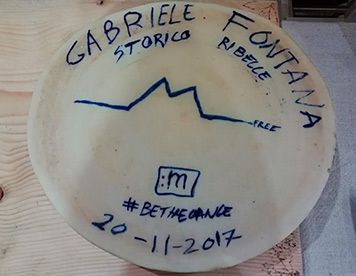 GABRIELE FONTANA
STORICO RIBELLE
FREE
:m
#BETHECHANGE
20-11-2017